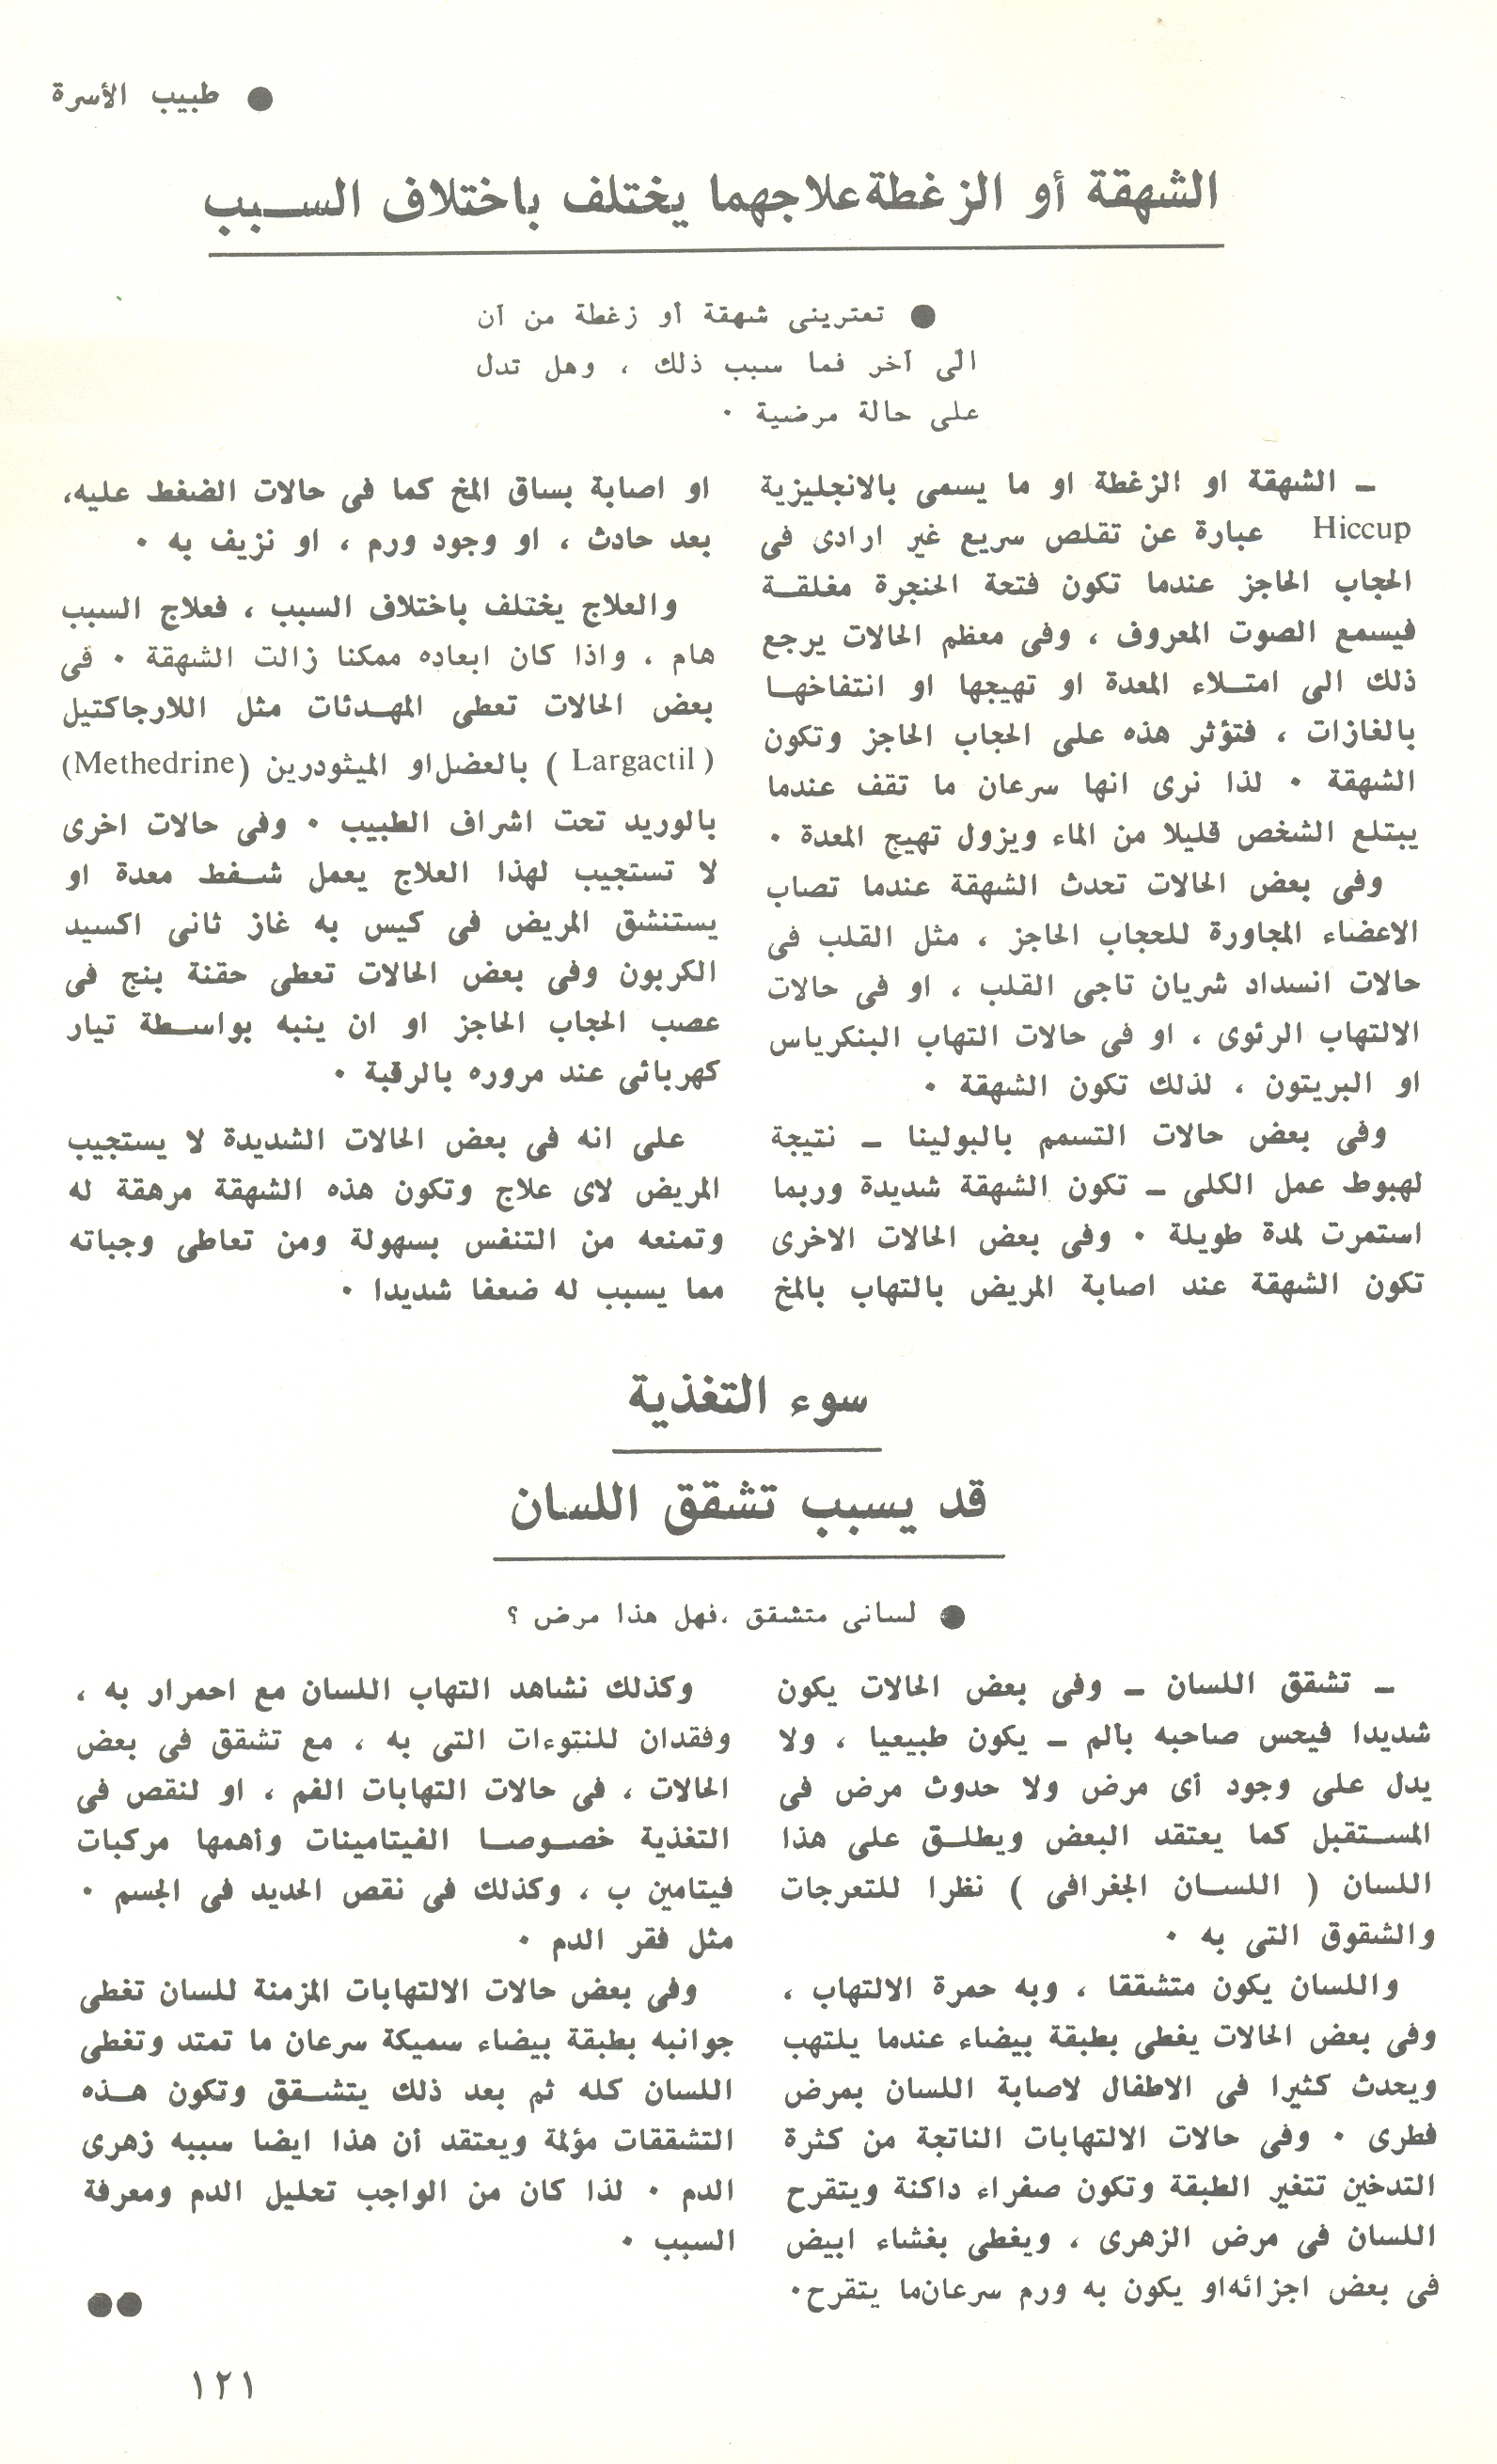 ● طبيب الأسرة
الشهقة أو الزغطة علاجهما يختلف باختلاف الســبب
● تعترينى شهقة أو زغطة من آن
الى آخر فما سبب ذلك ، وهل تدل
على حالة مرضية .
ـ الشهقة او الزغطة او ما يسمى بالانجليزية
Hiccup عبارة عن تقلص سريع غير ارادى فى
الحجاب الحاجز عندما تكون فتحة الحنجرة مغلقــة
فيسمع الصوت المعروف ، وفى معظم الحالات يرجع
ذلك الى امتــلاء المعدة او تهيجها او انتفاخهــا
بالغازات ، فتؤثر هذه على الحجاب الحاجز وتكون
الشهقة . لذا نرى انها سرعان ما تقف عندما
يبتلع الشخص قليلا من الماء ويزول تهيج المعدة .
وفى بعض الحالات تحدث الشهقة عندما تصاب
الاعضاء المجاورة للحجاب الحاجز ، مثل القلب فى
حالات انسداد شريان تاجى القلب ، او فى حالات
الالتهاب الرئوى ، او فى حالات التهاب البنكرياس
او البريتون ، لذلك تكون الشهقة .
وفى بعض حالات التسمم بالبولينا ـ نتيجة
لهبوط عمل الكلى ـ تكون الشهقة شديدة وربما
استمرت لمدة طويلة . وفى بعض الحالات الاخرى
تكون الشهقة عند اصابة المريض بالتهاب بالمخ
او اصابة بساق المخ كما فى حالات الضغط عليه،
بعد حادث ، او وجود ورم ، او نزيف به .
والعلاج يختلف باختلاف السبب ، فعلاج السبب
هام ، واذا كان ابعاده ممكنا زالت الشهقة . فى
بعض الحالات تعطى المهــدئات مثل اللارجاكتيل
( Largactil ) بالعضل او الميثودرين (Methedrine)
بالوريد تحت اشراف الطبيب . وفى حالات اخرى
لا تستجيب لهذا العلاج يعمل شــفط معدة او
يستنشق المريض فى كيس به غاز ثانى اكسيد
الكربون وفى بعض الحالات تعطى حقنة بنج فى
عصب الحجاب الحاجز او ان ينبه بواســطة تيار
كهربائى عند مروره بالرقبة .
على انه فى بعض الحالات الشديدة لا يستجيب
المريض لاى علاج وتكون هذه الشهقة مرهقة له
وتمنعه من التنفس بسهولة ومن تعاطى وجباته
مما يسبب له ضعفا شديدا .
سوء التغذية
قد يسبب تشقق اللسان
● لسانى متشقق ،فهل هذا مرض ؟
ـ تشقق اللسان ـ وفى بعض الحالات يكون
شديدا فيحس صاحبه بألم ـ يكون طبيعيا ، ولا
يدل على وجود أى مرض ولا حدوث مرض فى
المســتقبل كما يعتقد البعض ويطلــق على هذا
اللسان ( اللســان الجغرافى ) نظرا للتعرجات
والشقوق التى به .
واللسان يكون متشققا ، وبه حمرة الالتهاب ،
وفى بعض الحالات يغطى بطبقة بيضاء عندما يلتهب
ويحدث كثيرا فى الاطفال لاصابة اللسان بمرض
فطرى . وفى حالات الالتهابات الناتجة من كثرة
التدخين تتغير الطبقة وتكون صفراء داكنة ويتقرح
اللسان فى مرض الزهرى ، ويغطى بغشاء ابيض
فى بعض اجزائه او يكون به ورم سرعان ما يتقرح.
وكذلك نشاهد التهاب اللسان مع احمرار به ،
وفقدان للنتوءات التى به ، مع تشقق فى بعض
الحالات ، فى حالات التهابات الفم ، او لنقص فى
التغذية خصــوصــا الفيتامينات وأهمها مركبات
فيتامين ب ، وكذلك فى نقص الحديد فى الجسم .
مثل فقر الدم .
وفى بعض حالات الالتهابات المزمنة للسان تغطى
جوانبه بطبقة بيضاء سميكة سرعان ما تمتد وتغطى
اللسان كله ثم بعد ذلك يتشــقق وتكون هــذه
التشققات مؤلمة ويعتقد أن هذا ايضا سببه زهرى
الدم . لذا كان من الواجب تحليل الدم ومعرفة
السبب .
●●
١٢١